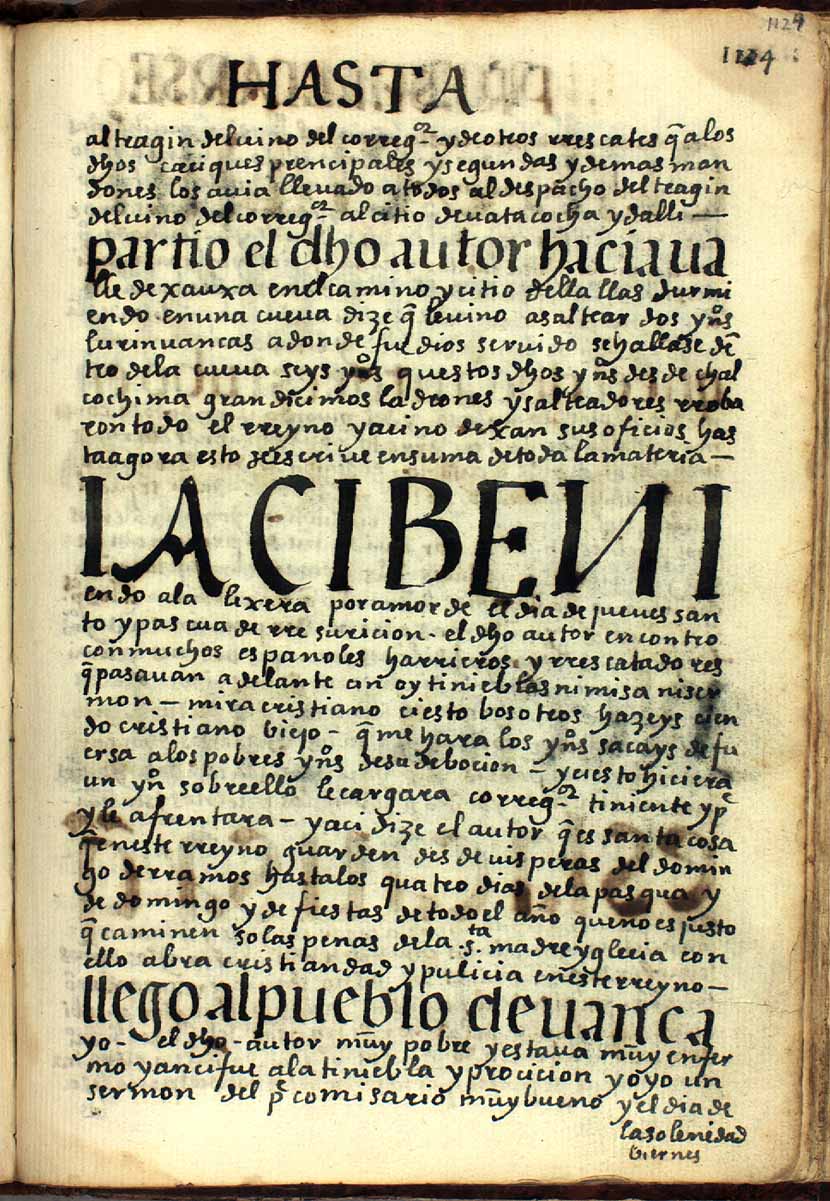 1124
1124
HASTA
al tragin del uino del correg.or y de otros rrescates q̃ a los
dhos caciques prencipales y segundas y demas man
dones los auia lleuado a todos al despacho del tragin
del uino del correg.or al citio de uatacocha y dalli —
partio el dho autor hacia ua
lle de xauxa en el camino y citio de llallas durmi
endo en una cueua dize q̃ le uino a saltear dos yn̄s
lurinuancas a donde fue dios seruido se hallase dē
tro de la cueua seys yn̄s questos dhos yn̄s desde chal
cochima grandicimos ladrones y salteadores rroba
ron todo el rreyno y aci no dexan sus oficios has
ta agora esto se escriue en suma de toda la materia —
IACIBENI
endo a la lixera por amor de el dia de jueues san
to y pascua de rresuricion - el dho autor encontro
con muchos españoles harrieros y rrescatadores
q̃ pasauan adelante cin oy tinieblas ni misa ni ser
mon — mira cristiano ci esto bosotros hazeys cien
do cristiano biejo - q̃ me hara los yn̄s sacays de fu
ersa a los pobres yn̄s de su debocion — y ci esto hiciera
un yn̄ sobre ello le cargara correg.or tiniente y p.e
y le afrentara — y aci dize el autor q̃ es santa cosa
q̃ en este rreyno guarden desde uisperas del domin
go de rramos hasta los quatro dias de la pasqua y
de domingo y de fiestas de todo el año que no es justo
q̃ caminen so las penas de la s.ta madre yglecia con
ello abra cristiandad y pulicia en este rreyno —
llego al pueblo de uanca
yo - el dho - autor muy pobre y estaua muy enfer
mo y anci fue a la tiniebla y procicion y oyo un
sermon del p.e comisario muy bueno y el dia de
la solenidad
biernes